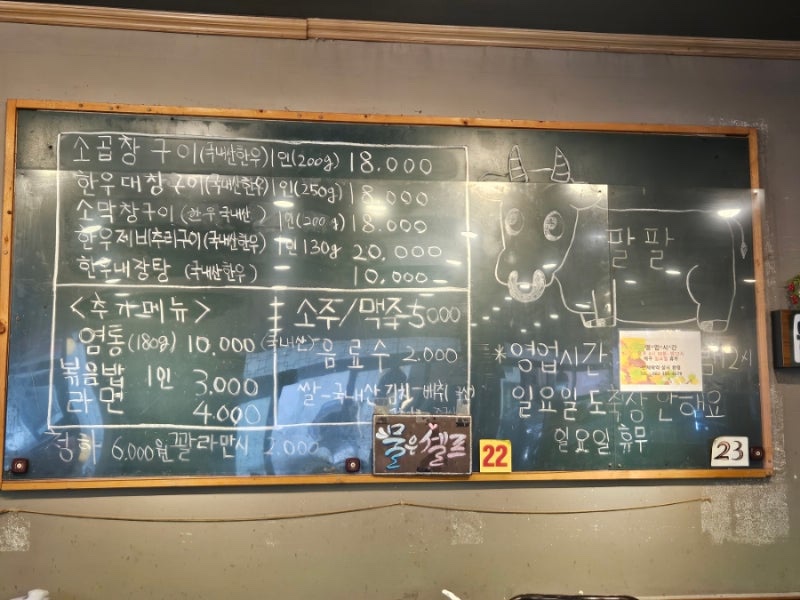 소곱창 구이 (국내산한우) 1인(200g) 18.000
한우대창구이(국내산한우) 1인(250g) 18.000
소막창구이 (한우국내산) 1인(200g) 18.000
한우제비추리구이(국내산한우) 1인 130g 20.000
한우내장탕 (국내산한우) 10.000
<추가메뉴>
염통(180g) 10.000 (국내산)
볶음밥 1인 3.000
라면 4.000
소주/맥주 5000
음료수 2.000
쌀-국내산 김치-배취
청하 6.000원 꼴라만시 2.000
물은 셀프
22
팔팔
*영업시간
영·업·시·간
2시
일요일 도축장 안해요
일요일 휴무
23